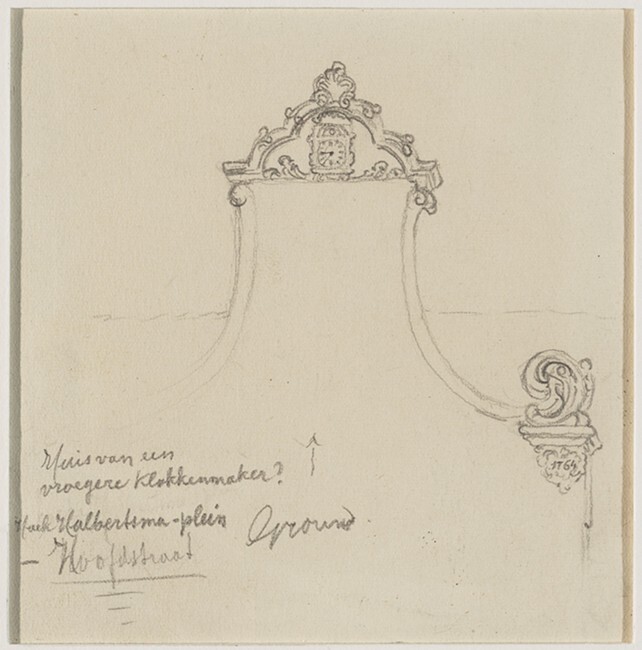 1764
Huis van een
vroegere klokkenmaker?
Hoek Halbertsma-plein
Grouw
— Hoofdstraat